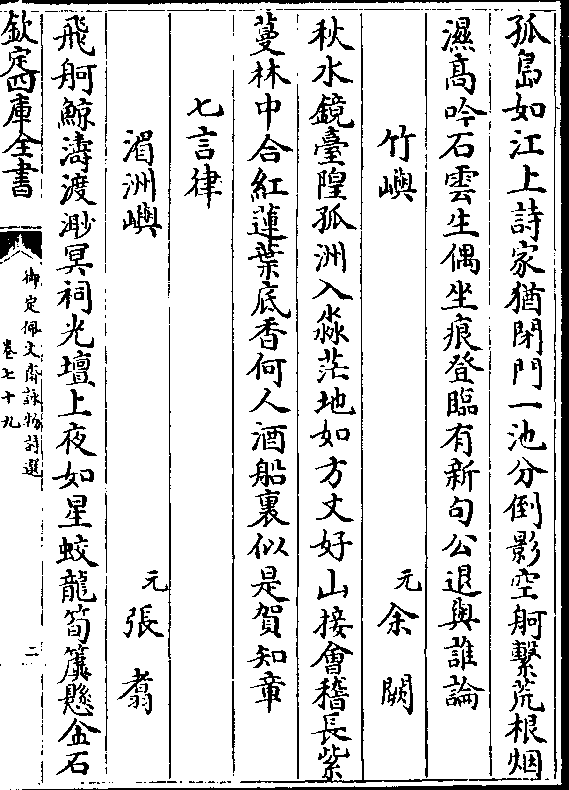 孤島如江上詩家猶閉門一池分倒影空舸繫荒根烟
濕高吟石雲生偶坐痕登臨有新句公退與誰論
竹嶼　元余闕
秋水鏡臺隍孤洲入淼茫地如方丈好山接會稽長紫
蔓林中合紅蓮葉底香何人酒船裏似是賀知章
七言律
湄洲嶼　元張翥
飛舸鯨濤渡渺冥祠光壇上夜如星蛟龍筍簴懸金石
欽定四庫全書
御定佩文齋詠物詩選
卷七十九
二